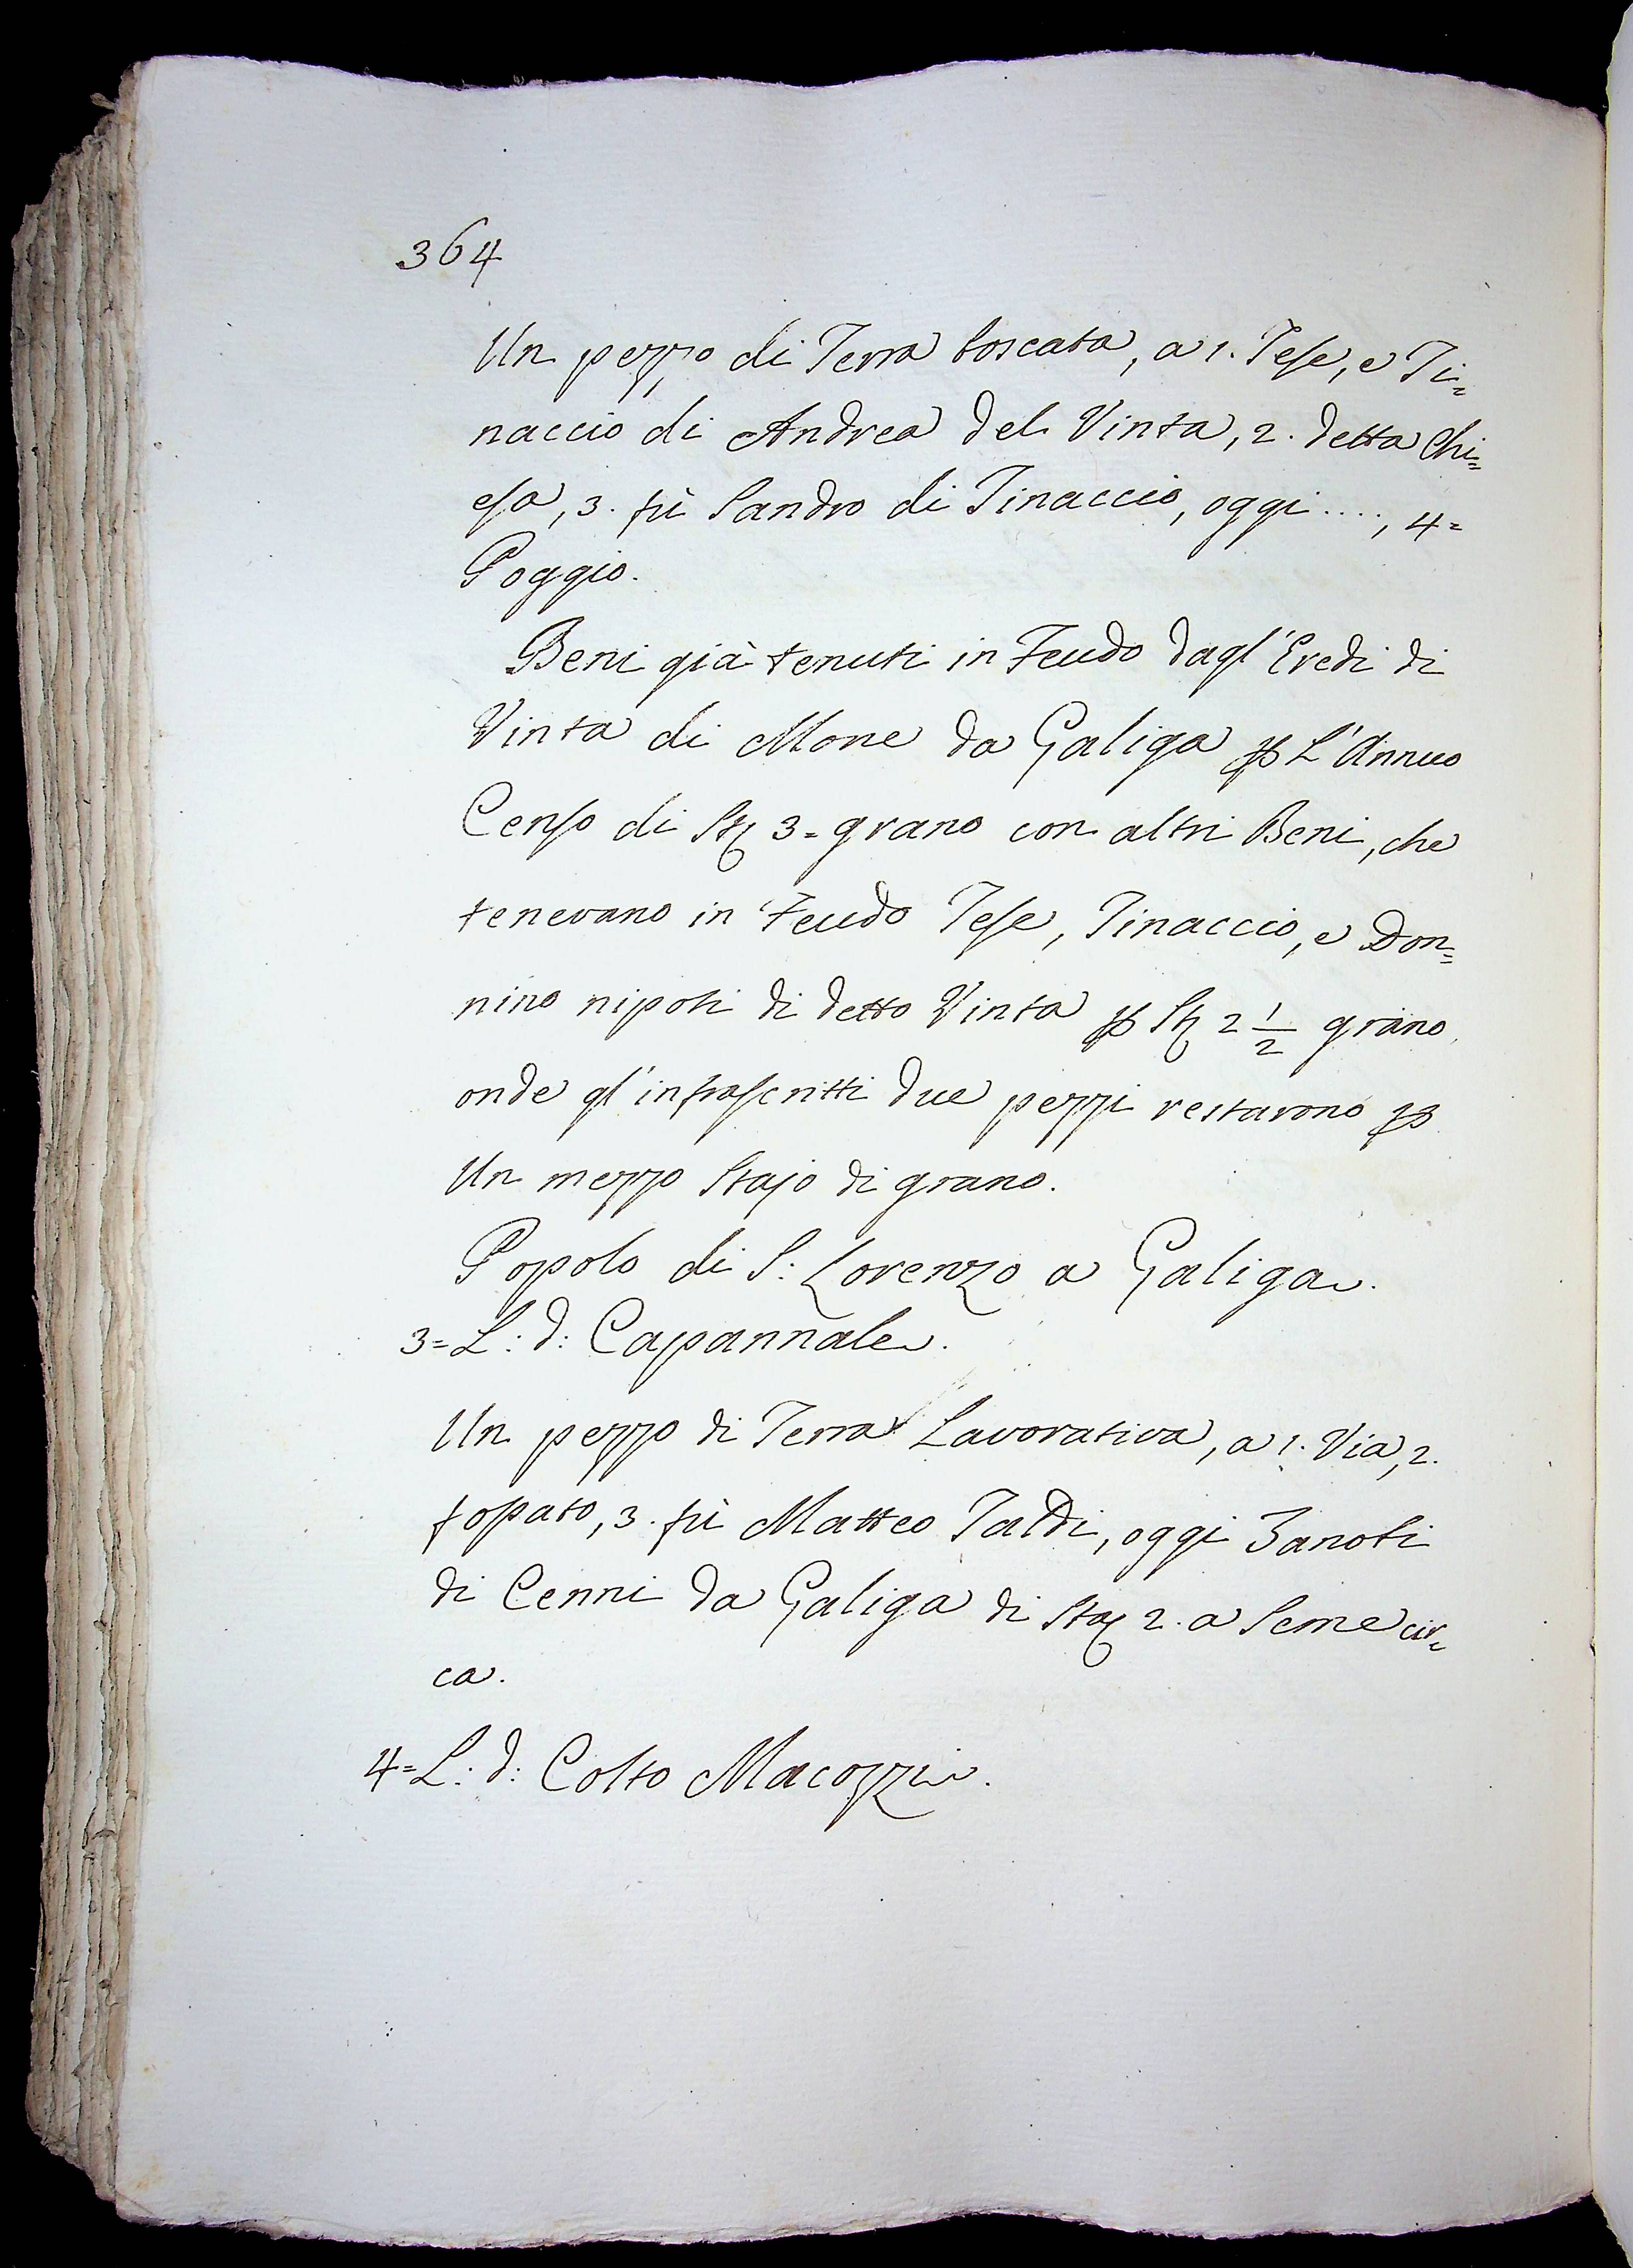 364
Un pezzo di Terra boscata, a 1. Tese, e Ti=
naccio di Andrea del Vinta, 2. detta Chi=
esa, 3. fù Sandro di Tinaccio, oggi ...., 4=
Poggio.
Beni già tenuti in Feudo dagl'Eredi di
Vinta di Mone da Galiga ꝑ L'Annuo
Censo di Sta 3= grano con altri Beni, che
tenevano in Feudo Tese, Tinaccio, e Don=
nino nipoti di detto Vinta ꝑ Sta 2 1/2 grano,
onde gl'infrascritti due pezzi restarono ꝑ
Un mezzo Stajo di grano.
Popolo di S: Lorenzo a Galiga.
3= L: d: Capannale.
Un pezzo di Terra Lavorativa, a 1. Via, 2.
fossato, 3. fù Matteo Taddi, oggi Zanobi
di Cenni da Galiga di Sta 2. a Seme cir=
ca.
4= L: d: Colto Macozzi.